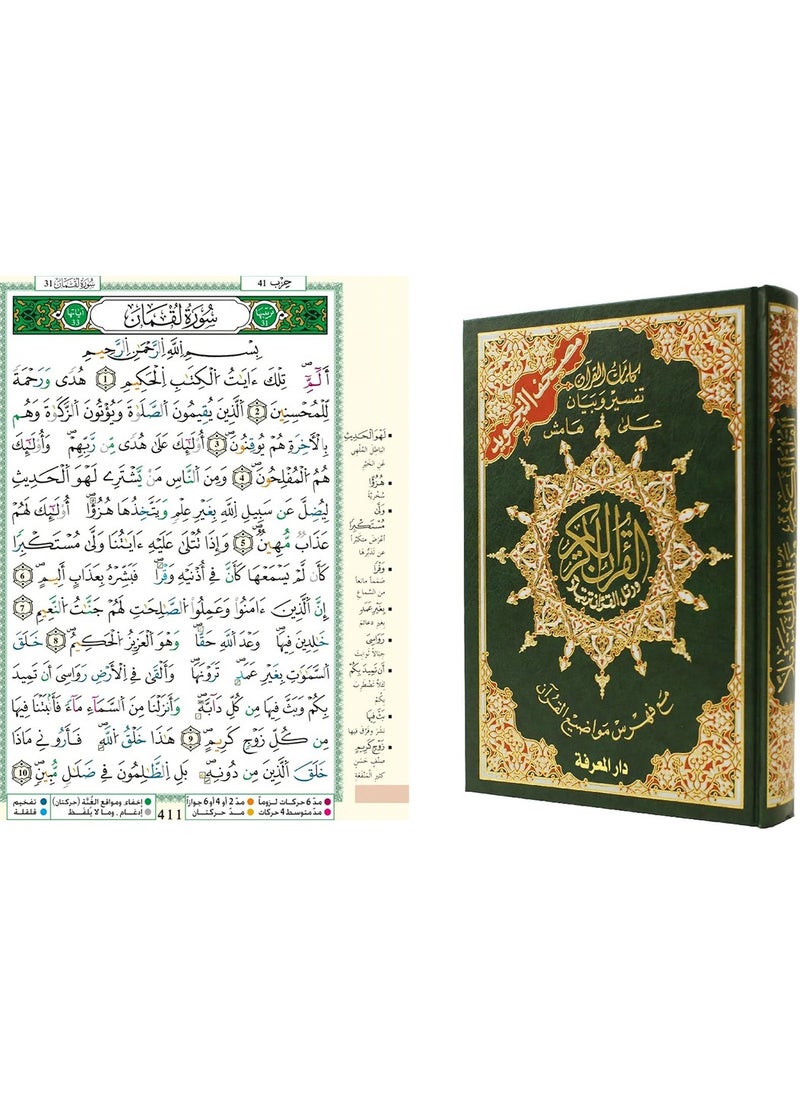 سُورَةُ لُقْمَان 31
حِزْب 41
آيَاتُهَا 33
سُورَةُ لُقْمَان
تَرتيبُهَا 31
بِسْمِ اللَّهِ الرَّحْمَٰنِ الرَّحِيمِ
الٓمٓ ۝1 تِلْكَ ءَايَٰتُ الْكِتَٰبِ الْحَكِيمِ ۝2 هُدًى وَرَحْمَةً
لِّلْمُحْسِنِينَ ۝3 الَّذِينَ يُقِيمُونَ الصَّلَوٰةَ وَيُؤْتُونَ الزَّكَوٰةَ وَهُم
بِالْآخِرَةِ هُمْ يُوقِنُونَ ۝4 أُوْلَٰٓئِكَ عَلَىٰ هُدًى مِّن رَّبِّهِمْ ۖ وَأُوْلَٰٓئِكَ
هُمُ الْمُفْلِحُونَ ۝5 وَمِنَ النَّاسِ مَن يَشْتَرِي لَهْوَ الْحَدِيثِ
لِيُضِلَّ عَن سَبِيلِ اللَّهِ بِغَيْرِ عِلْمٍ وَيَتَّخِذَهَا هُزُوًا ۚ أُوْلَٰٓئِكَ لَهُمْ
عَذَابٌ مُّهِينٌ ۝6 وَإِذَا تُتْلَىٰ عَلَيْهِ ءَايَٰتُنَا وَلَّىٰ مُسْتَكْبِرًا
كَأَن لَّمْ يَسْمَعْهَا كَأَنَّ فِىٓ أُذُنَيْهِ وَقْرًا ۖ فَبَشِّرْهُ بِعَذَابٍ أَلِيمٍ ۝7
إِنَّ الَّذِينَ ءَامَنُوا وَعَمِلُوا الصَّٰلِحَٰتِ لَهُمْ جَنَّٰتُ النَّعِيمِ ۝8
خَٰلِدِينَ فِيهَا ۖ وَعْدَ اللَّهِ حَقًّا ۚ وَهُوَ الْعَزِيزُ الْحَكِيمُ ۝9 خَلَقَ
السَّمَٰوَٰتِ بِغَيْرِ عَمَدٍ تَرَوْنَهَا ۖ وَأَلْقَىٰ فِى الْأَرْضِ رَوَٰسِىَ أَن تَمِيدَ
بِكُمْ وَبَثَّ فِيهَا مِن كُلِّ دَآبَّةٍ ۚ وَأَنزَلْنَا مِنَ السَّمَآءِ مَآءً فَأَنبَتْنَا فِيهَا
مِن كُلِّ زَوْجٍ كَرِيمٍ ۝10 هَٰذَا خَلْقُ اللَّهِ فَأَرُونِى مَاذَا
خَلَقَ الَّذِينَ مِن دُونِهِ ۚ بَلِ الظَّٰلِمُونَ فِى ضَلَٰلٍ مُّبِينٍ
لَهْوَ الْحَدِيثِ
الباطل المُلْهِي
عن الخير
هُزُوًا
سُخْرِيَّة
وَلَّىٰ مُسْتَكْبِرًا
أعرض متكبّراً
عن تدبُّرها
وَقْرًا
صمماً مانعاً
من السّماع
بِغَيْرِ عَمَدٍ
بغير دعائم
رَوَاسِيَ
جبالاً ثوابت
أَن تَمِيدَ بِكُمْ
لئلّا تضطرب
بكم
بَثَّ فِيهَا
نشر وفرّق فيها
زَوْجٍ كَرِيمٍ
صنفٍ حَسَنٍ
كثير المنفعة
مدّ 6 حركات لزوماً مدّ 2 أو 4 أو 6 جوازاً إخفاء، ومواقع الغُنَّة (حركتان) تفخيم
مدّ متوسط 4 حركات مدّ حركتان 411 إدغام، وما لا يُلفَظ قلقلة
مصحف التجويد
كلمات القرآن
تفسير وبيان
على هامش
القرآن الكريم
ورتل القرآن ترتيلا
مع فهرس مواضيع القرآن
دار المعرفة